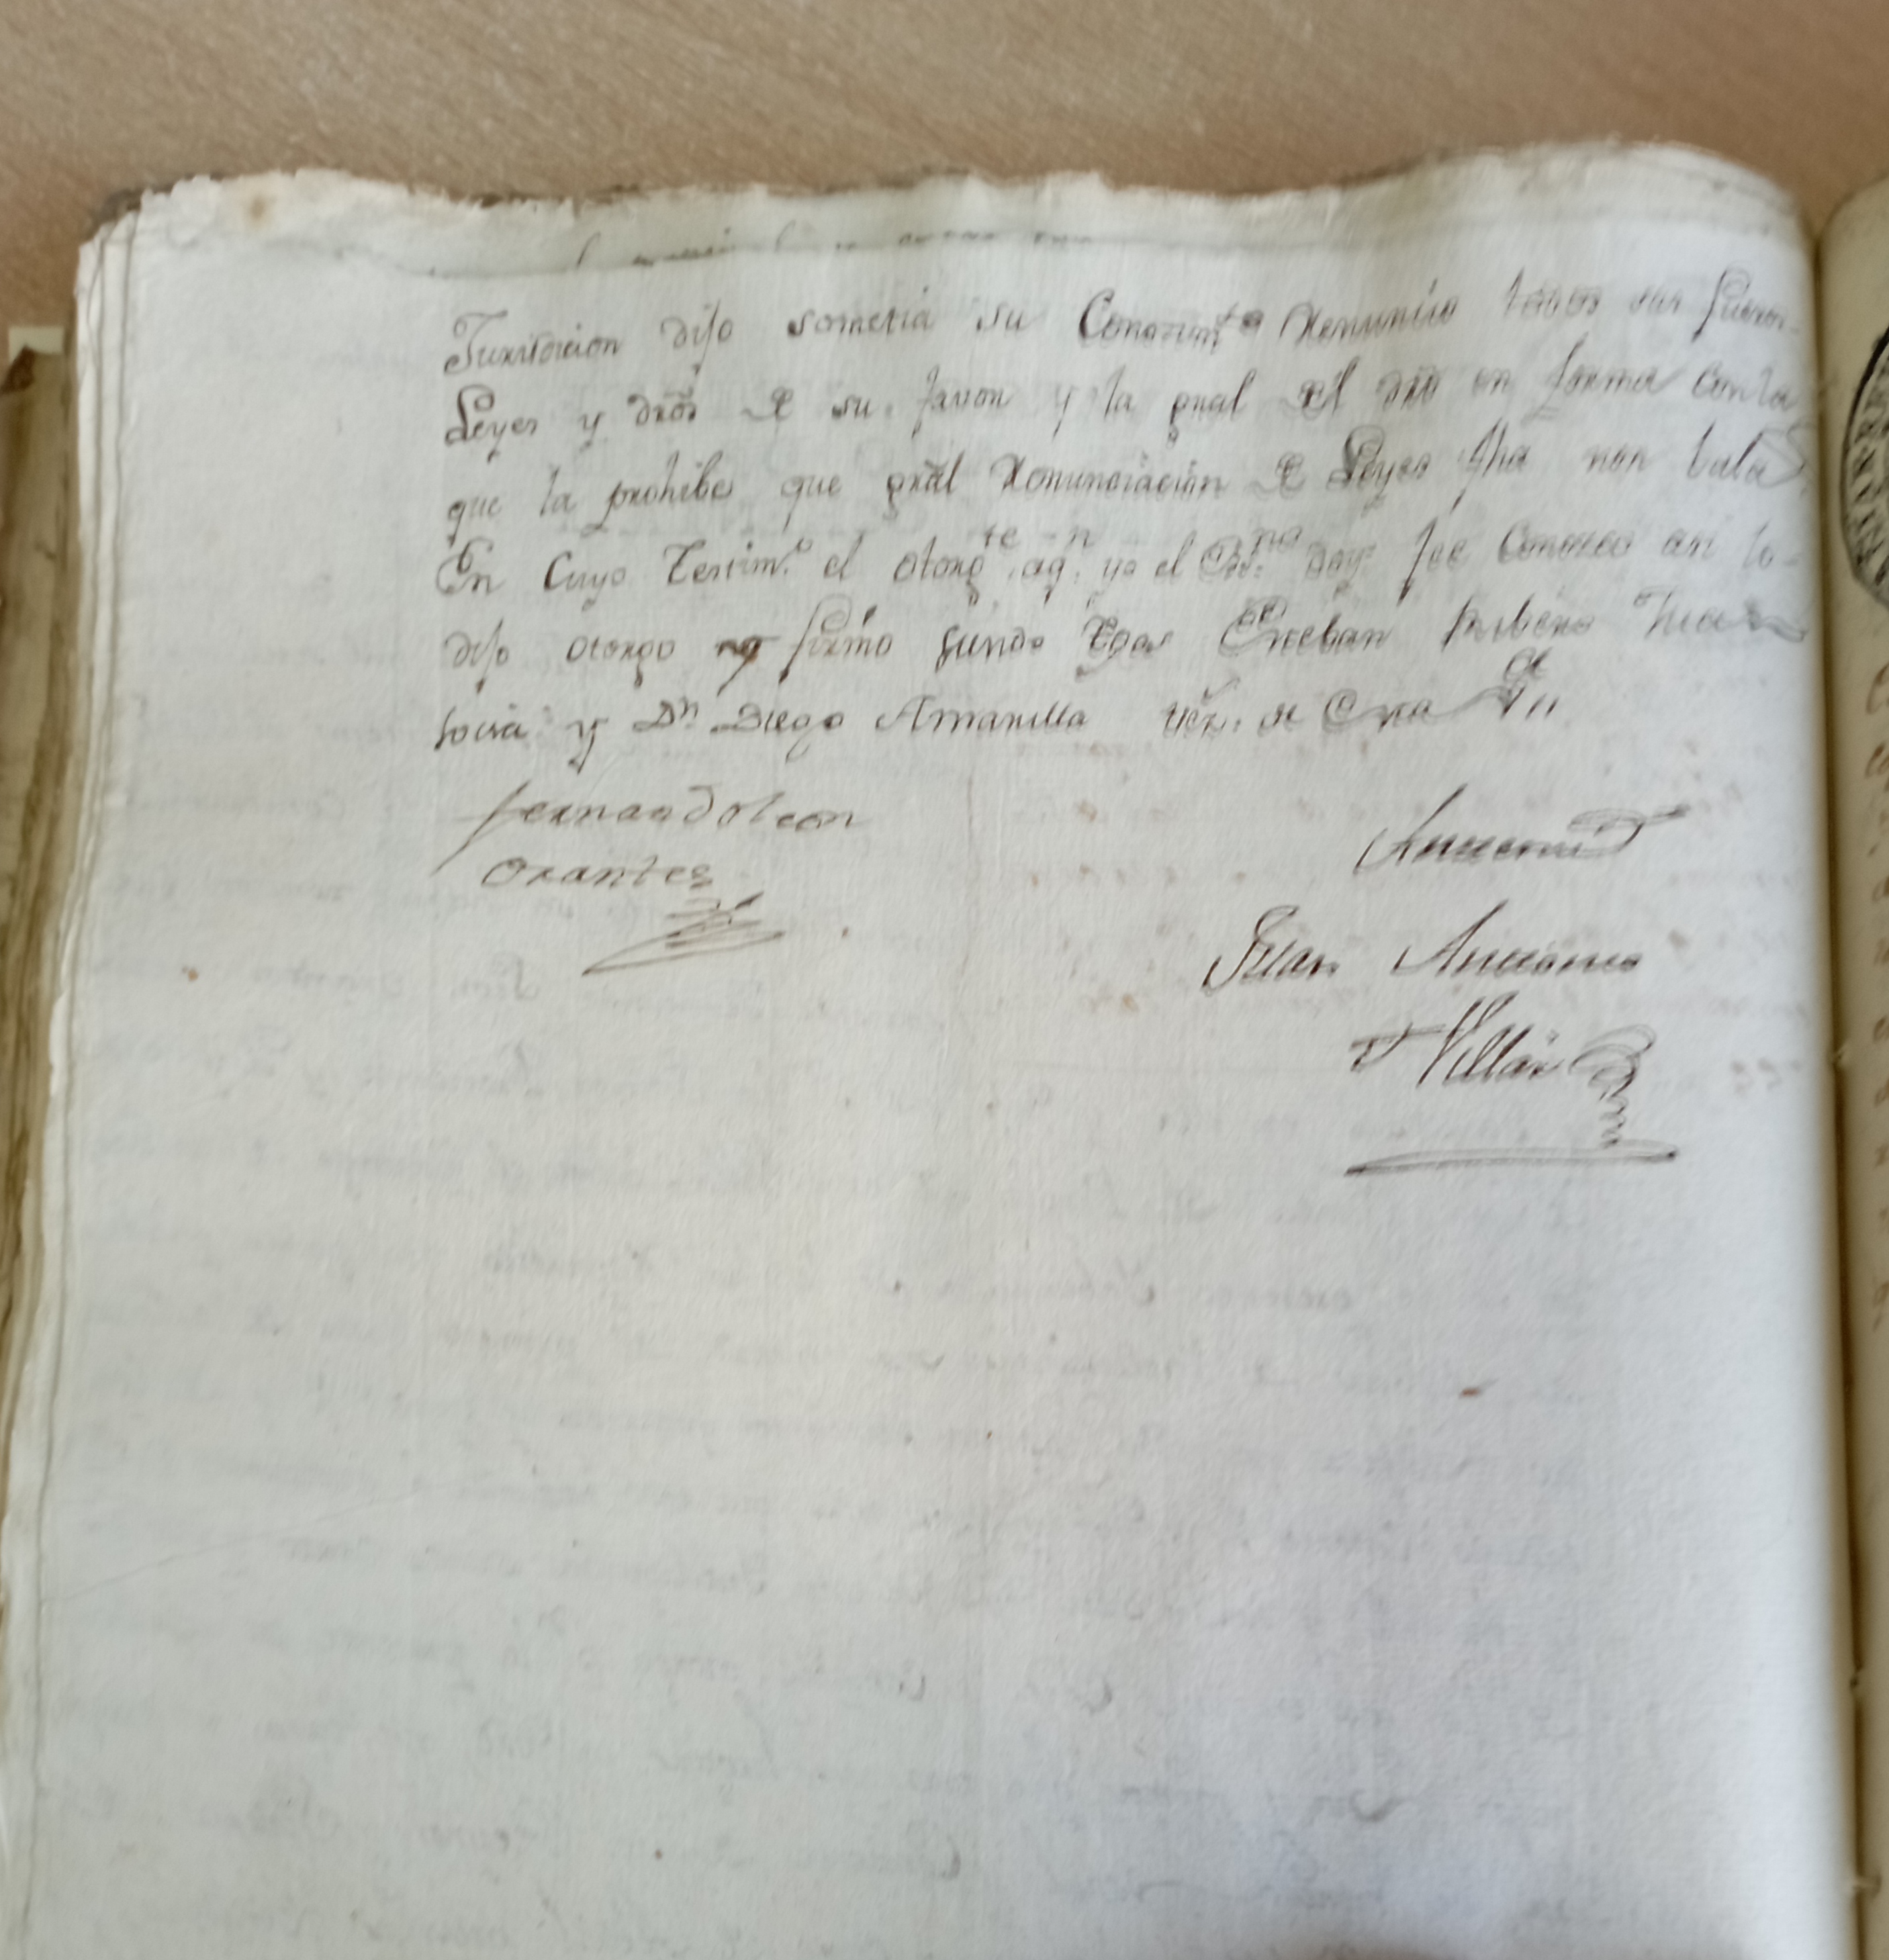 Jurisdicion dijo sometia su Conozim.to Renuncio todos sus fueros
Leyes y dros de su favor y la gral del dro en forma con la
que la prohibe que gral Renunciacion de Leyes fha non bala
En Cuyo Testim.o el otorg.te aq.n yo el Ess.no doy fee Conozco asi lo
dijo otorgo y firmo siendo tgos Esteban Ribero Juan
y Dn Diego Amarilla vez.s de esta
fernando leon
orantes
Antemi
Juan Antonio
Villar